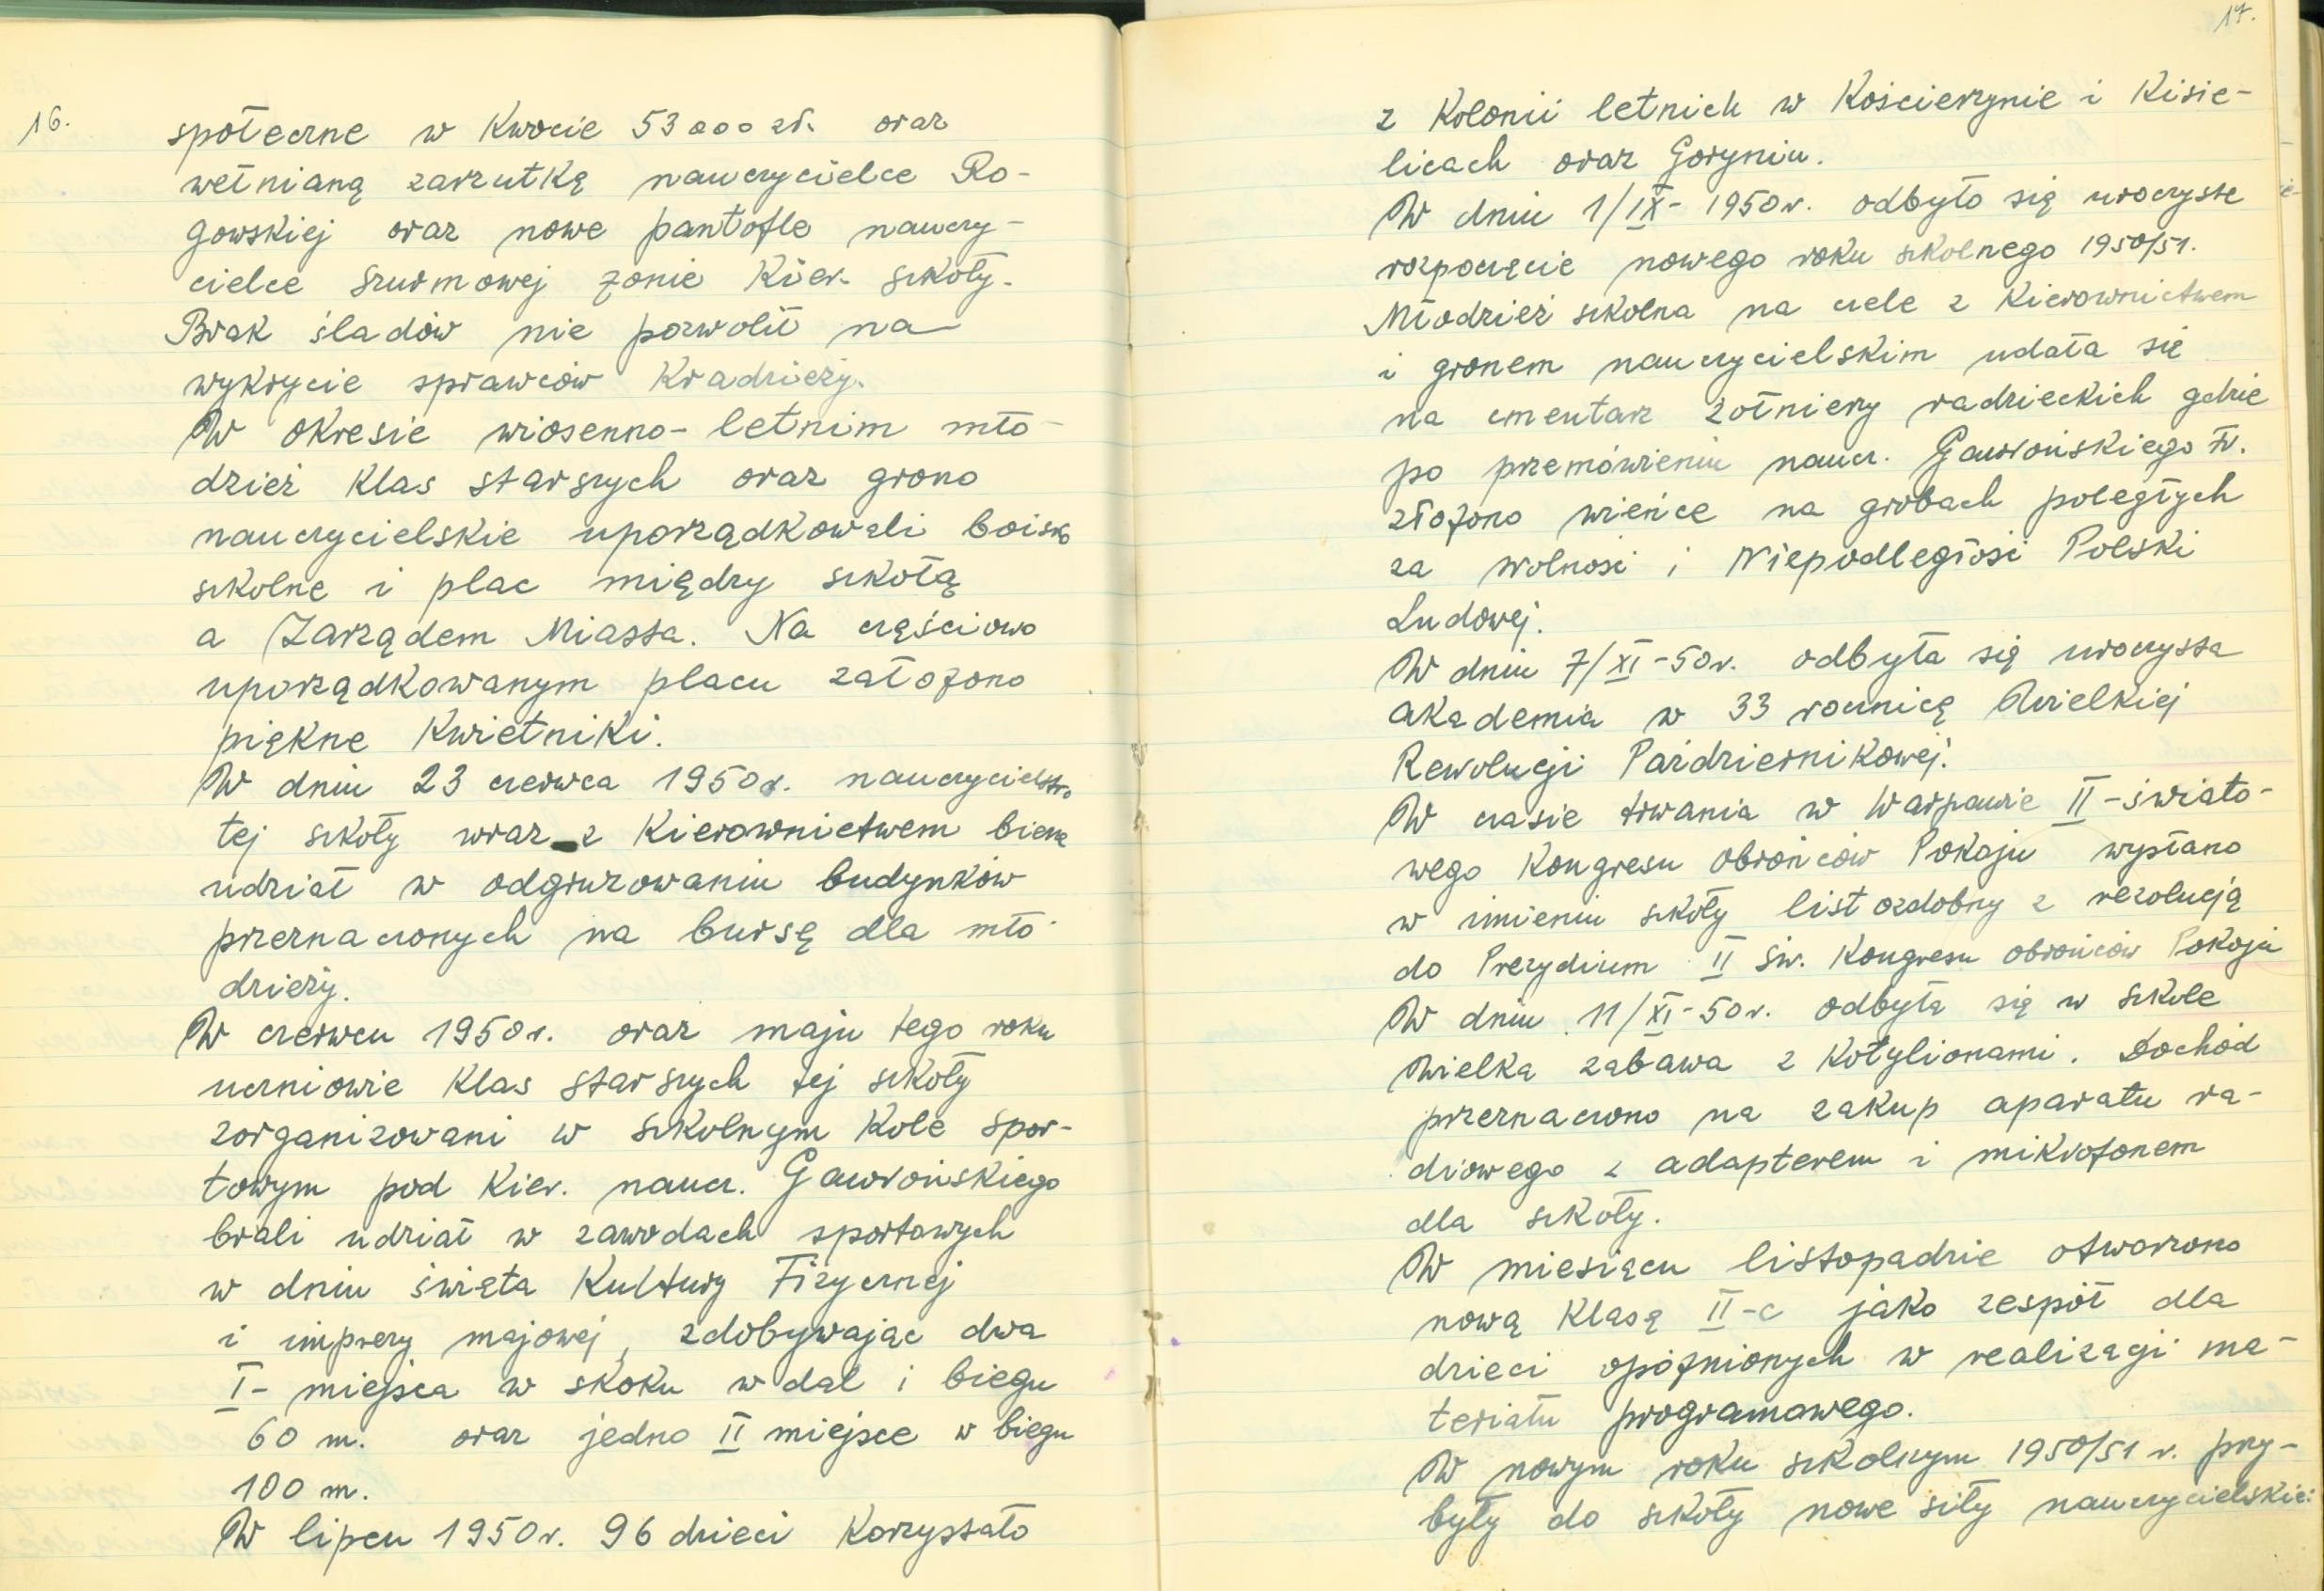 16.
społeczne w kwocie 53000 zł. oraz
wełnianą zarzutkę nauczycielce Ro-
gowskiej oraz nowe pantofle nauczy-
cielce Szurmowej żonie kier. szkoły.
Brak śladów nie pozwolił na
wykrycie sprawców kradzieży.
W okresie wiosenno-letnim mło-
dzież klas starszych oraz grono
nauczycielskie uporządkowali boisko
szkolne i plac między szkołą
a Zarządem Miasta. Na częściowo
uporządkowanym placu założono
piękne kwietniki.
W dniu 23 czerwca 1950r. nauczycielstwo
tej szkoły wraz z kierownictwem bierze
udział w odgruzowaniu budynków
przeznaczonych na bursę dla mło-
dzieży.
W czerwcu 1950r. oraz maju tego roku
uczniowie klas starszych tej szkoły
zorganizowani w szkolnym kole spor-
towym pod kier. naucz. Gawrońskiego
brali udział w zawodach sportowych
w dniu święta Kultury Fizycznej
i imprezy majowej, zdobywając dwa
I- miejsca w skoku w dal i biegu
60 m. oraz jedno II miejsce w biegu
100 m.
W lipcu 1950r. 96 dzieci korzystało
17.
z kolonii letnich w Kościerzynie i Kisie-
licach oraz Goryniu.
W dniu 1/IX- 1950r. odbyło się uroczyste
rozpoczęcie nowego roku szkolnego 1950/51.
Młodzież szkolna na czele z kierownictwem
i gronem nauczycielskim udała się
na cmentarz żołnierzy radzieckich gdzie
po przemówieniu naucz. Gawrońskiego Fr.
złożono wieńce na grobach poległych
za wolność i Niepodległość Polski
Ludowej.
W dniu 7/XI-50r. odbyła się uroczysta
akademia w 33 rocznicę Wielkiej
Rewolucji Październikowej.
W czasie trwania w Warszawie II-świato-
wego Kongresu Obrońców Pokoju wysłano
w imieniu szkoły list ozdobny z rezolucją
do Prezydium II Św. Kongresu obrońców Pokoju
W dniu 11/XI-50r. odbyła się w szkole
wielka zabawa z kotylionami. Dochód
przeznaczono na zakup aparatu ra-
diowego z adapterem i mikrofonem
dla szkoły.
W miesiącu listopadzie otworzono
nową klasę II-c jako zespół dla
dzieci opóźnionych w realizacji ma-
teriału programowego.
W nowym roku szkolnym 1950/51 r. przy-
były do szkoły nowe siły nauczycielskie: